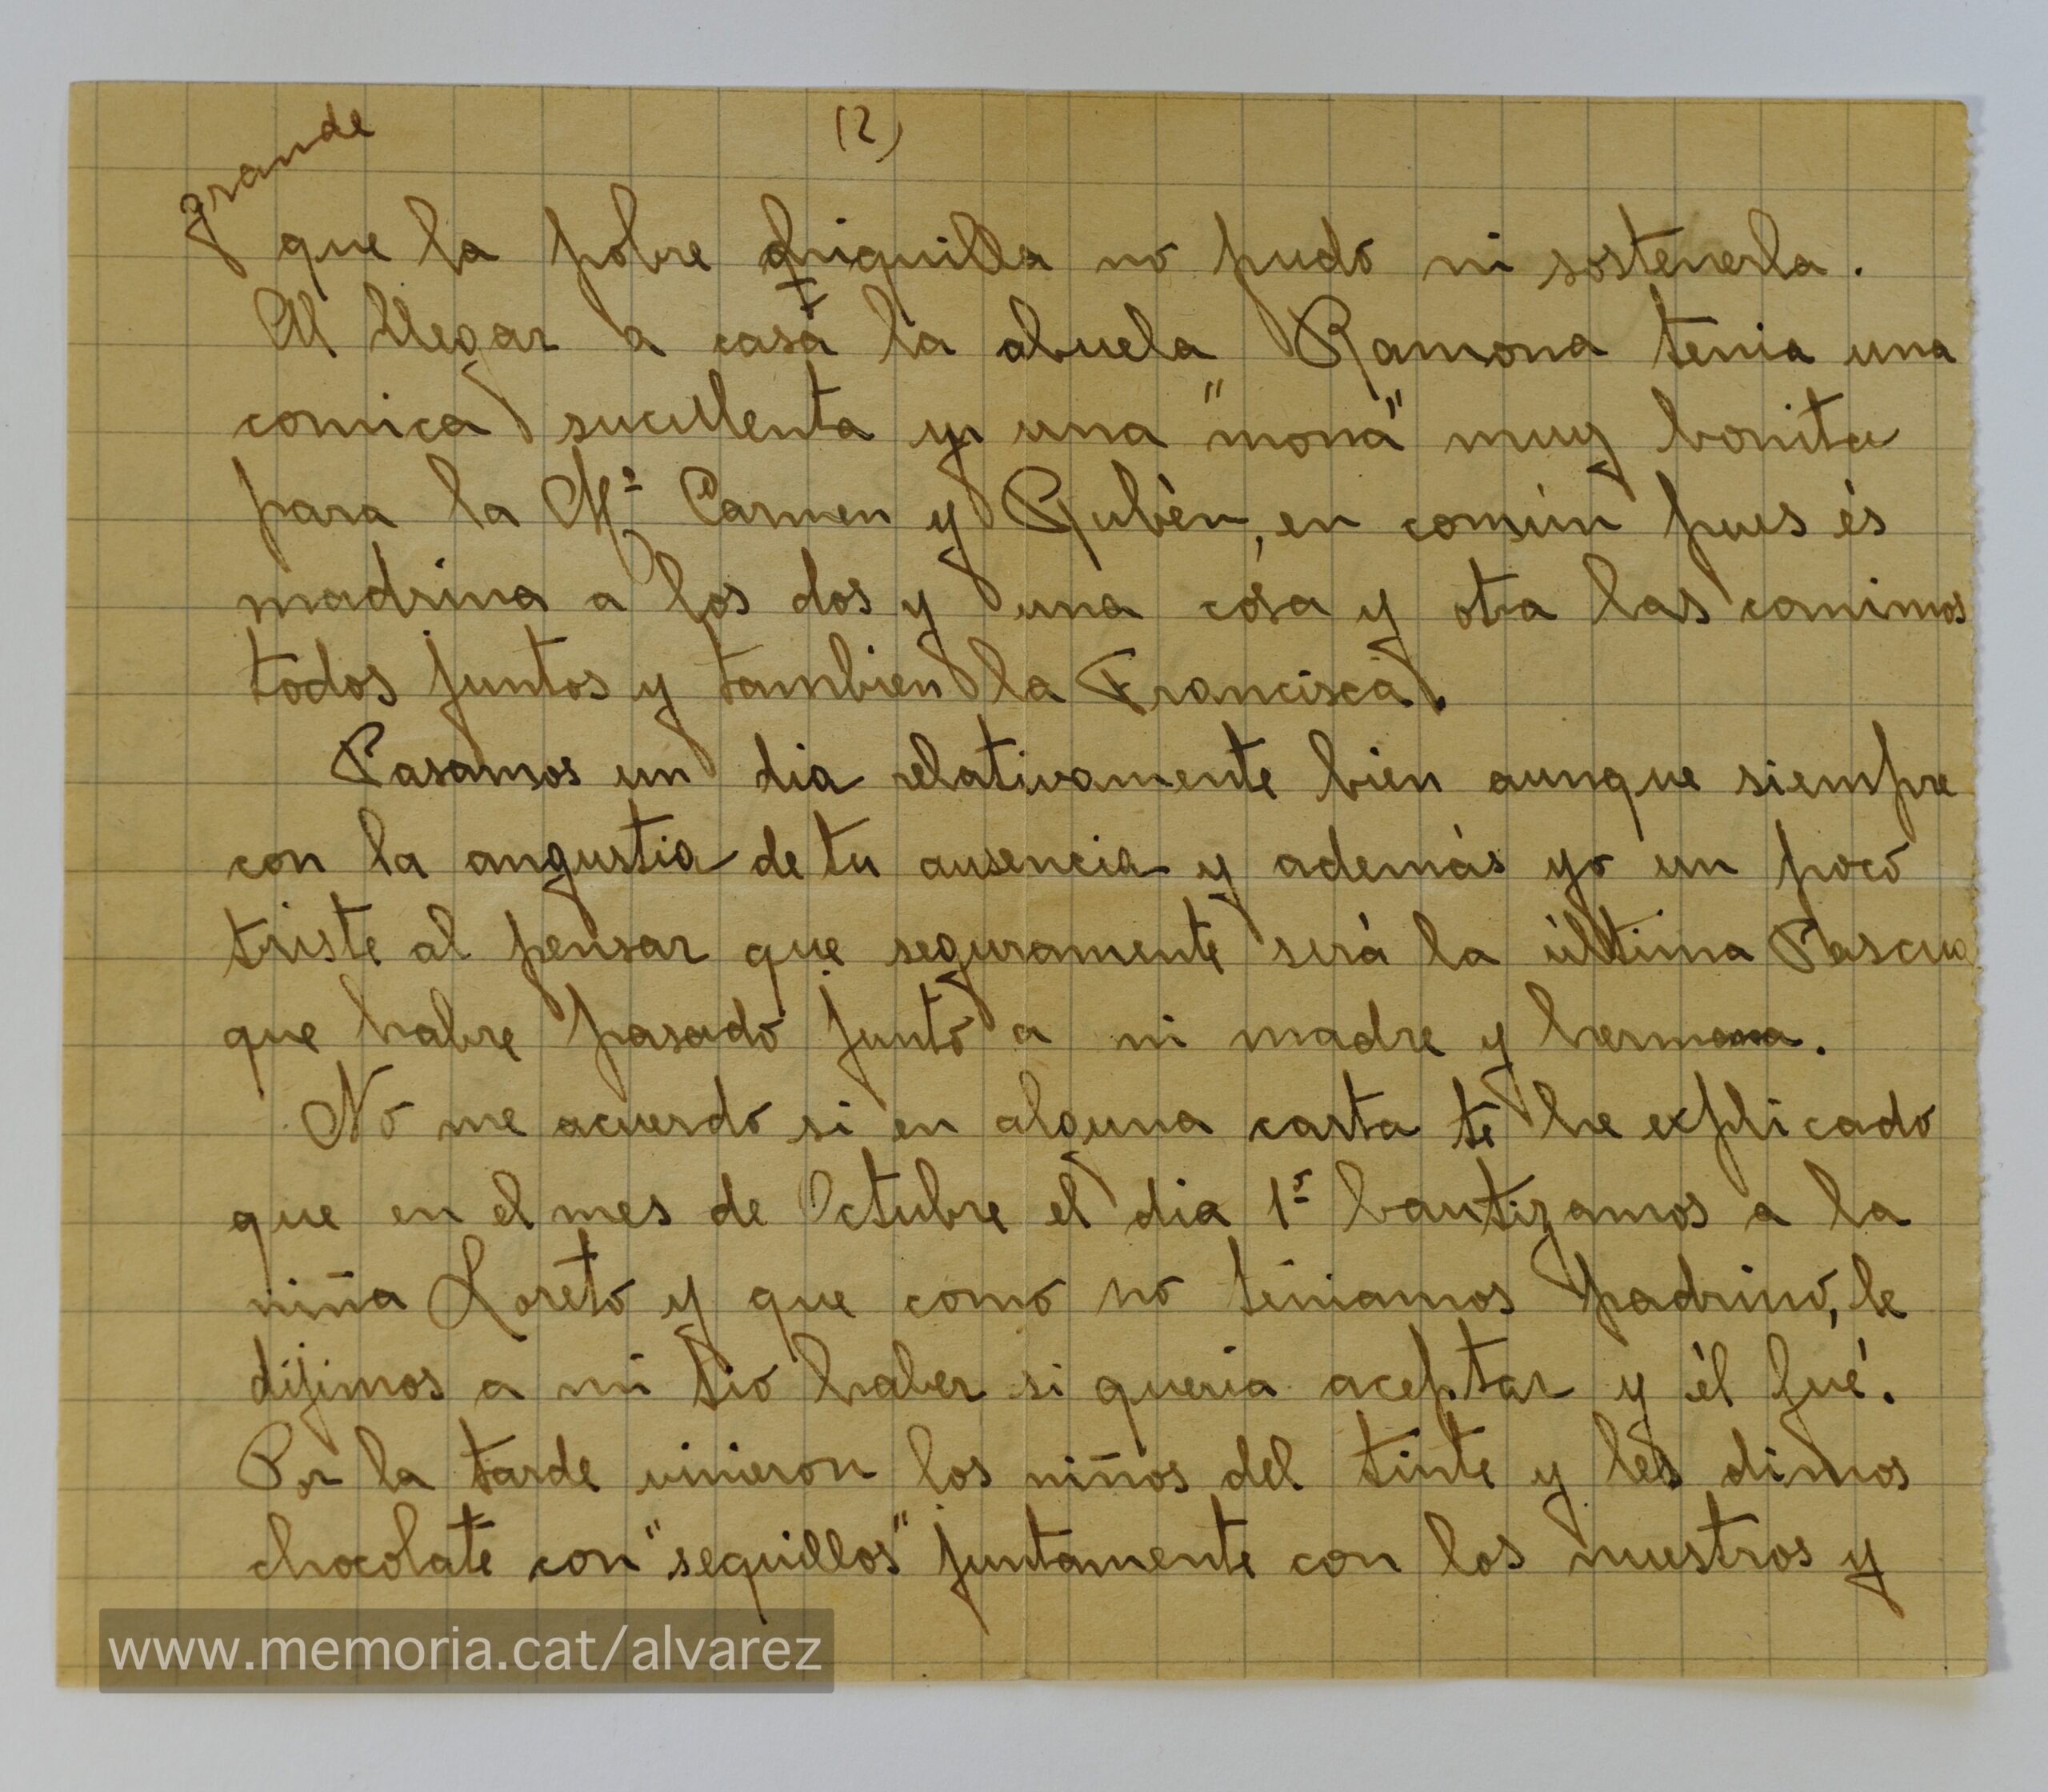 (2)
grande
que la pobre chiquilla no pudo ni sostenerla.
Al llegar a casa la abuela Ramona tenia una
comica sucullenta y una "mona" muy bonita
para la Mª Carmen y Rubèn, en común pues és
madrina a los dos y una cosa y otra las comimos
todos juntos y tambien la Francisca.
Pasamos un dia relativamente bien aunque siempre
con la angustia de tu ausencia y además yo un poco
triste al pensar que seguramente será la última Pascua
que habre pasado junto a mi madre y hermana.
No me acuerdo si en alguna carta te he explicado
que en el mes de Octubre el dia 1º bautizamos a la
niña Loreto y que como no teniamos padrino, le
dijimos a mi tio haber si queria aceptar y él fué.
Por la tarde vinieron los niños del tinte y les dimos
chocolate con "sequillos" juntamente con los nuestros y
www.memoria.cat/alvarez